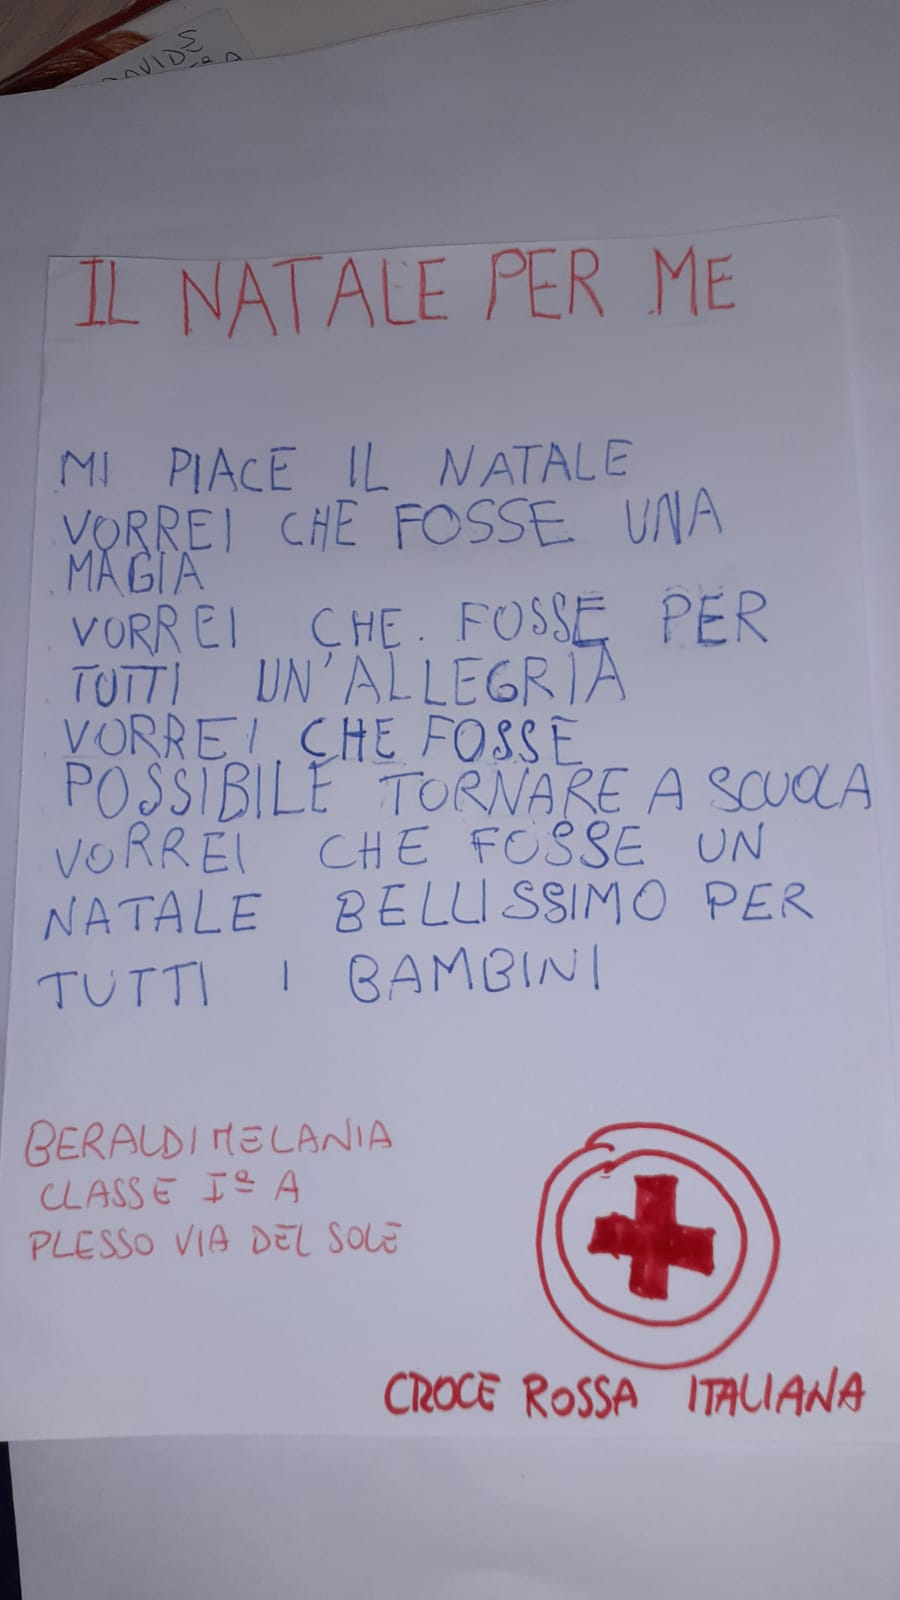 IL NATALE PER ME
MI PIACE IL NATALE
VORREI CHE FOSSE UNA
MAGIA
VORREI CHE FOSSE PER
TUTTI UN'ALLEGRIA
VORREI CHE FOSSE
POSSIBILE TORNARE A SCUOLA
VORREI CHE FOSSE UN
NATALE BELLISSIMO PER
TUTTI I BAMBINI
BERALDI MELANIA
CLASSE Iª A
PLESSO VIA DEL SOLE
CROCE ROSSA ITALIANA